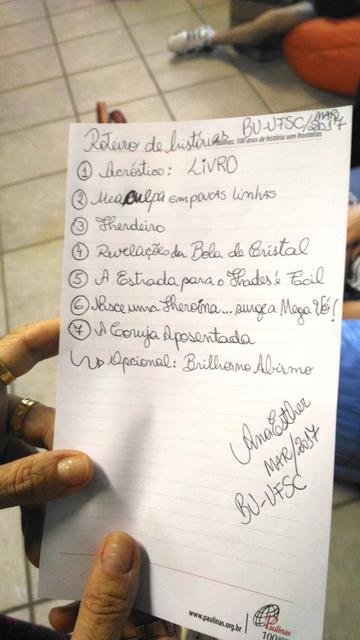 Roteiro de histórias BU-UFSC/MAR 2017
Paulinas: 100 anas de história sem fronteiras
1 Acróstico: LIVRO
2 Mea culpa em poucas linhas
3 Herdeiro
4 Revelações da Bola de Cristal
5 A Estrada para o Hades é Fácil
6 Nasce uma Heroína... surge a Mega Vó!
7 A Coruja Aposentada
↳ Opcional: Brilho no Abismo
Ana Esther
MAR/2017
BU-UFSC
www.paulinas.org.br
Paulinas